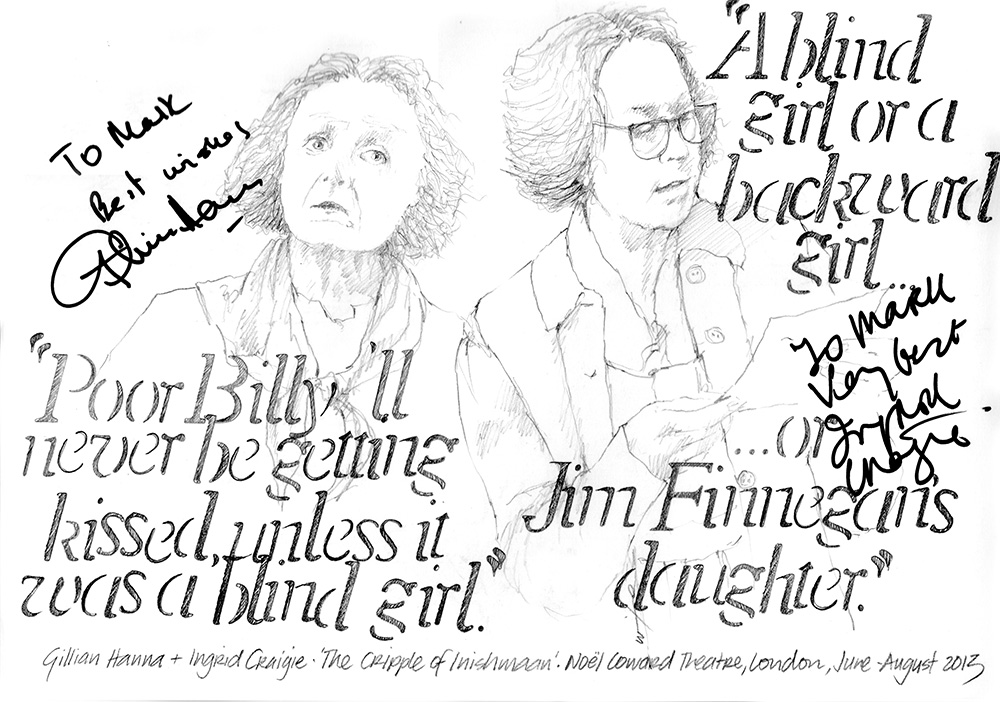 To Mark
Best wishes
"Poor Billy'll
never be getting
kissed, unless it
was a blind girl."
"A blind
girl or a
backward
girl...
To MARK
Very best
Ingrid
Craigie
...or
Jim Finnegan's
daughter."
Gillian Hanna + Ingrid Craigie · 'The Cripple of Inishmaan' · Noël Coward Theatre, London, June - August 2013